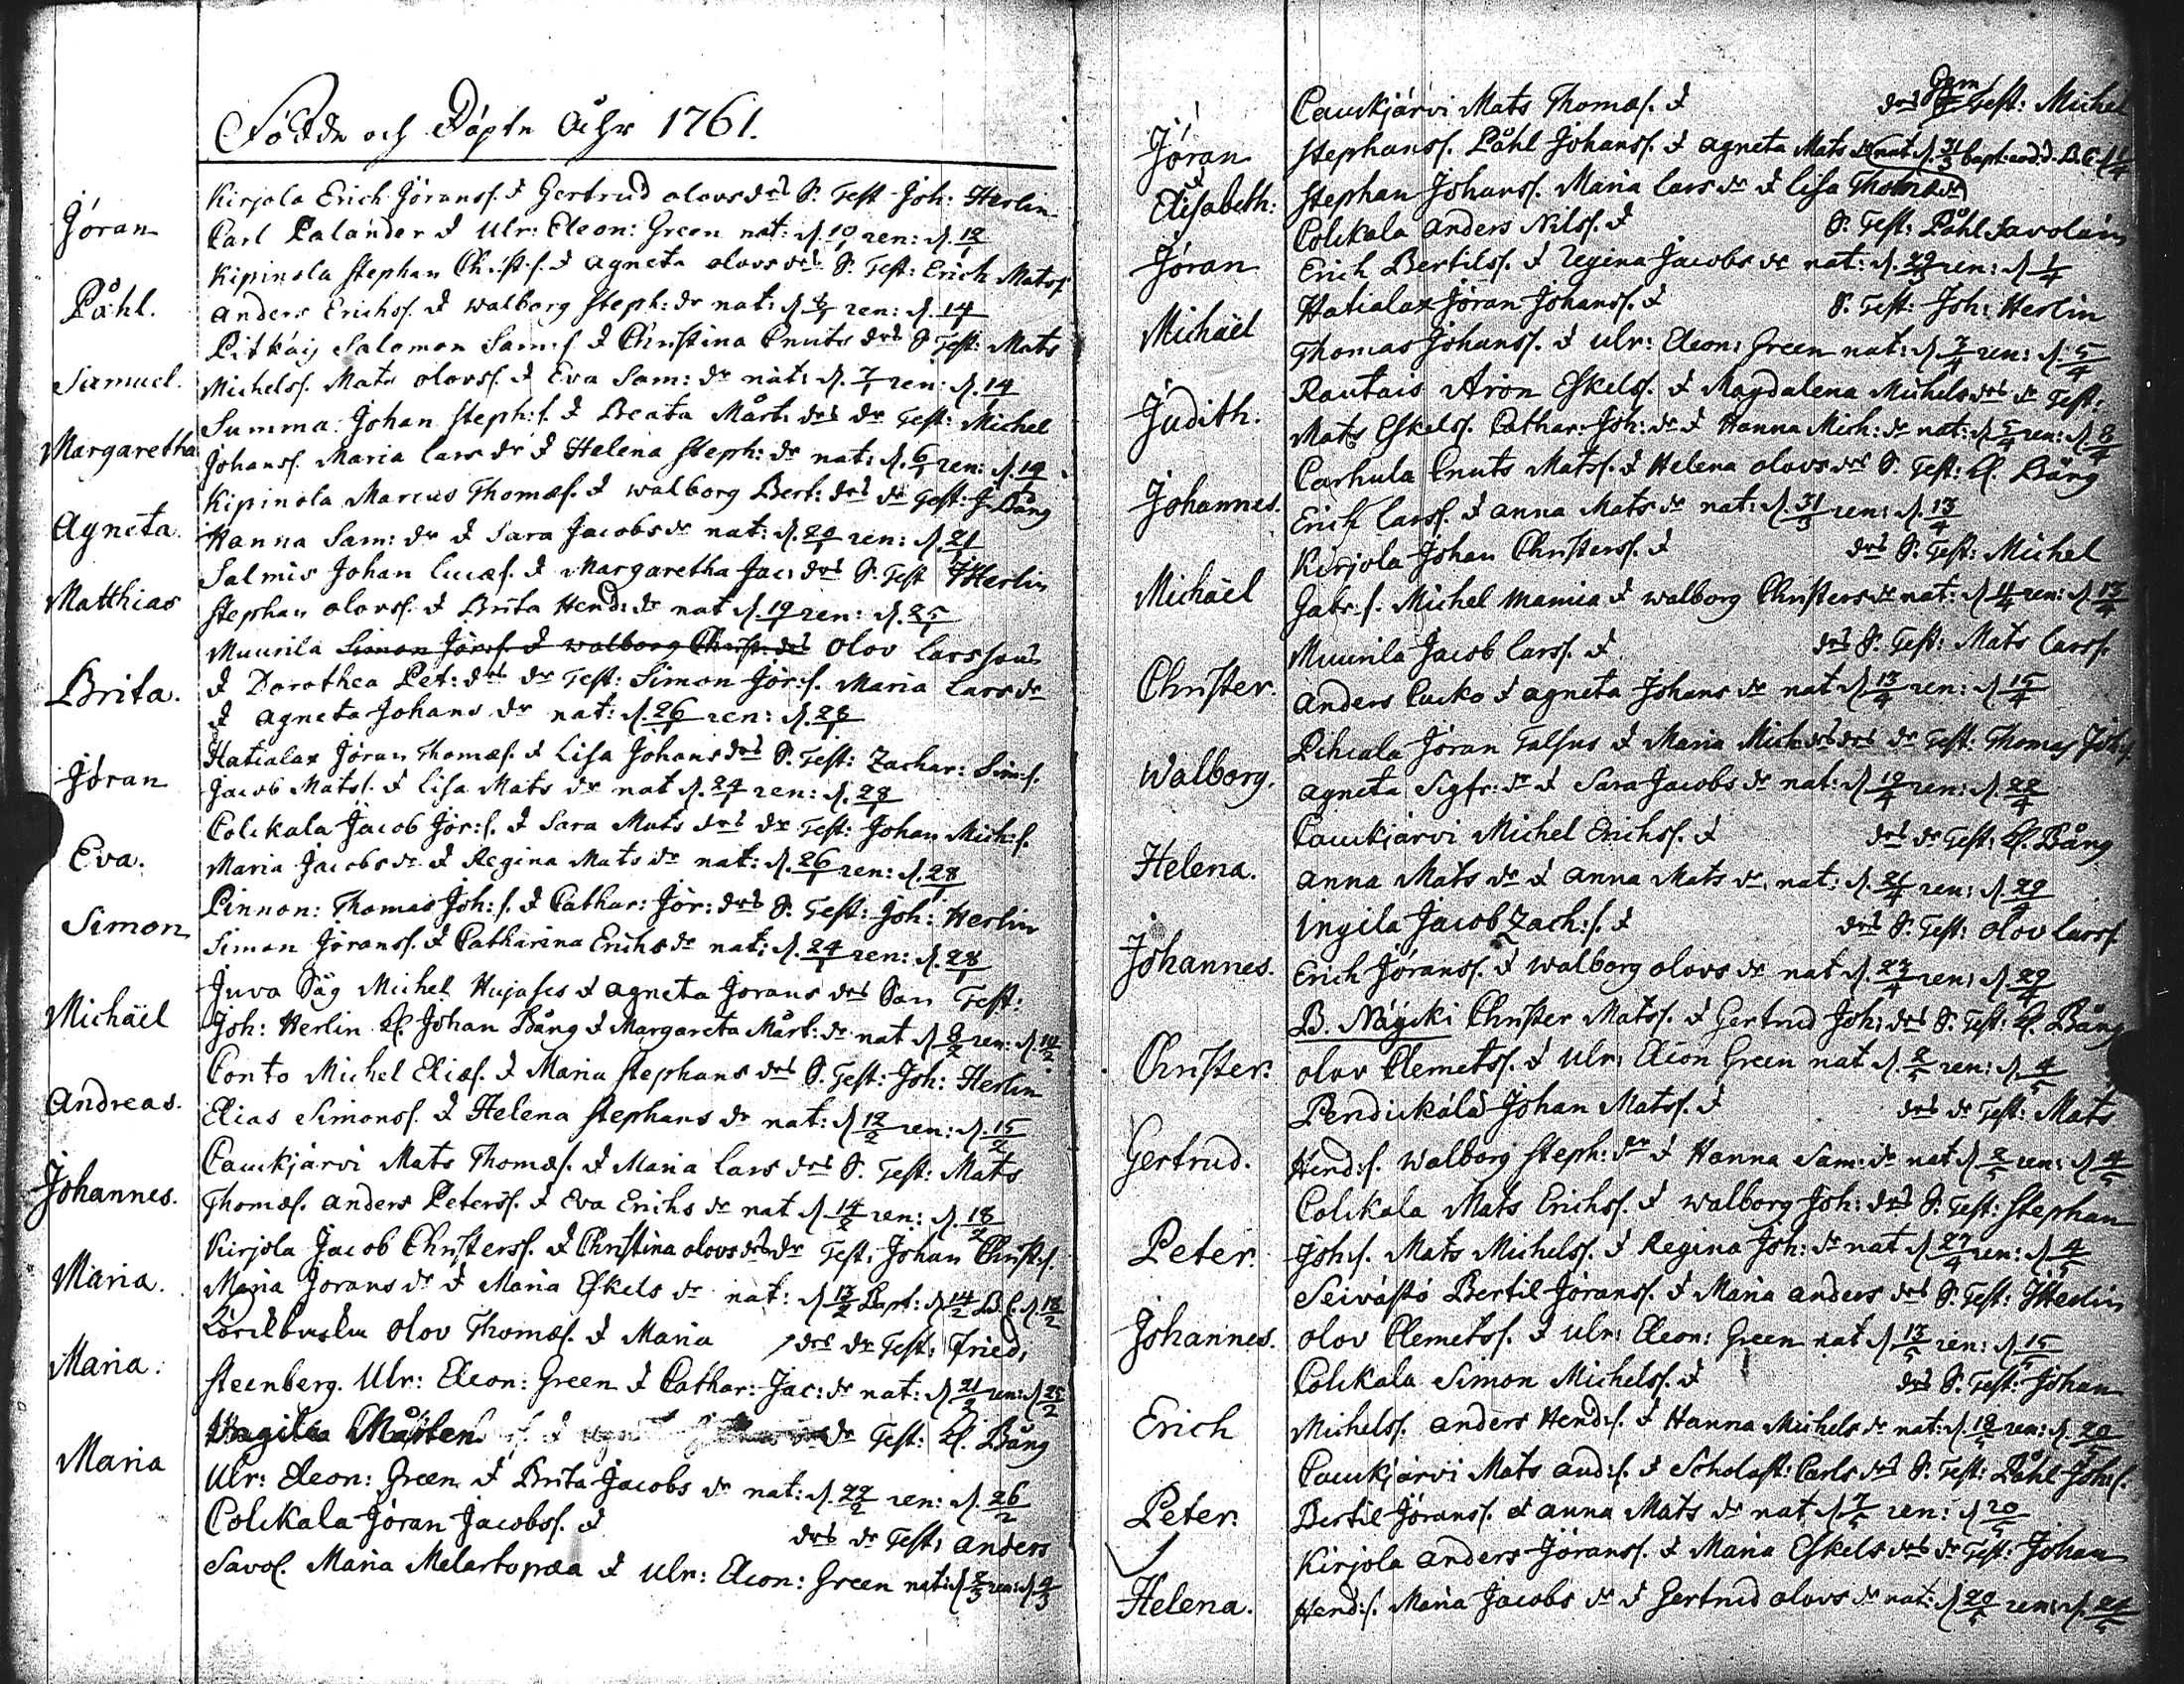 Födde och Döpte Åhr 1761.
Jöran
Kirjola Erich Jöranss. & Gertrud olovsdrs S. Test Joh: Herlin
Carl Palánder & Ulr: Eleon: Green nat: d. 10/1 ren: d. 12/1
Påhl.
Kipinola Stephan Christ:s. & Agneta olovs drs S. Test: Erich Matss.
Anders Erichss. & Walborg Steph: dr nat: d. 8/1 ren: d. 14/1
Samuel.
Pitkäij Salomon Sam:s. & Christina Cnuts drs S. Test: Mats
Michelss. Mats olovss. & Eva Sam: dr nat: d. 7/1 ren: d. 14/1
Margaretha
Summa Johan Steph:s. & Beata Mårt: drs dr Test: Michel
Johanss. Maria Lars dr & Helena Steph: dr nat: d. 6/1 ren: d. 14/1
Agneta
Kipinola Marcus Thomæs. & Walborg Bert: drs dr Test: J. Bång
Hanna Sam: dr & Sara Jacobs dr nat: d. 20/1 ren: d. 21/1
Matthias
Salmis Johan Lucæs. & Margaretha Jac: drs S. Test J Herlin
Stephan olovss. & Brita Hend: dr nat d. 19/1 ren: d. 25/1
Brita.
Muurila Simon Jör:s. & Walborg Christ: drs Olov Larssons
& Dorothea Pet: drs dr Test: Simon Jör:s. Maria Lars dr
& Agneta Johans dr nat: d. 26/1 ren: d. 28/1
Jöran
Hatialax Jöran Thomæs. & Lisa Johans drs S. Test: Zachar: Sim:s.
Jacob Matss. & Lisa Mats dr nat d. 24/1 ren: d. 28/1
Eva.
Colckala Jacob Jör:s. & Sara Mats drs dr Test: Johan Mich:s.
Maria Jacobs dr & Regina Mats dr nat: d. 26/1 ren: d. 28/1
Simon
Pinnon: Thomas Joh:s. & Cathar: Jör: drs S. Test: Joh: Herlin
Simon Jöranss. & Catharina Erichs dr nat: d. 24/1 ren: d. 28/1
Michäel
Juva Såg Michel Hujases & Agneta Jörans drs Son Test:
Joh: Herlin Kl. Johan Bång & Margareta Mårt: dr nat d. 8/2 ren: d. 14/2
Andreas.
Conto Michel Eliæs. & Maria Stephans drs S. Test: Joh: Herlin
Elias Simonss. & Helena Stephans dr nat: d. 12/2 ren: d. 15/2
Johannes.
Cauckjärvi Mats Thomæs. & Maria Lars drs S. Test: Mats
Thomæs. Anders Peterss. & Eva Erichs dr nat d. 14/2 ren: d. 18/2
Maria.
Kirjola Jacob Christerss. & Christina olovs drs dr Test: Johan Christ:s.
Maria Jörans dr & Maria Eskels dr nat: d. 13/2 Bapt: d. 14/2 B.C. d. 18/2
Maria.
olov Thomæs. & Maria drs dr Test: Fried:
Steenberg. Ulr: Eleon: Green & Cathar: Jac: dr nat: d. 21/2 ren: d. 25/2
Maria
Ingila Mårten s. & dr Test: Kl. Bång
Ulr: Eleon: Green & Brita Jacobs dr nat: d. 22/2 ren: d. 26/2
Colckala Jöran Jacobss. & drs dr Test: Anders
Savol. Maria Melartopæa & Ulr: Eleon: Green nat: d. 2/3 ren: d. 4/3
Jöran
Cauckjärvi Mats Thomæs. & drs Test: Michel
Stephanss. Påhl Johanss. & Agneta Mats dr nat d. 31/3 bapt: eod: d. B.C. d. 1/4
Elisabeth:
Stephan Johanss. Maria Lars dr & Lisa Thomædr
Jöran
Colckala Anders Nilss. & S. Test: Påhl Savolain
Erich Bertilss. & Regina Jacobs dr nat: d. 29/3 ren: d. 1/4
Michäel
Hatialax Jöran Johanss. & S. Test: Joh: Herlin
Thomas Johanss. & Ulr: Eleon: Green nat: d. 3/4 ren: d. 5/4
Judith.
Rautais Aron Eskelss. & Magdalena Michels drs dr Test:
Mats Eskelss. Cathar: Joh: dr & Hanna Mich: dr nat: d. 5/4 ren: d. 8/4
Johannes.
Carhula Cnuts Matss. & Helena olovs drs S. Test: Kl. Bång
Erich Larss. & Anna Mats dr nat: d. 31/3 ren: d. 13/4
Michäel
Kirjola Johan Christerss. & drs S. Test: Michel
Gabr:s. Michel Mamia & Walborg Christers dr nat: d. 11/4 ren: d. 13/4
Christer.
Muurila Jacob Larss. & drs S. Test: Mats Larss.
Anders Cucko & Agneta Johans dr nat d. 13/4 ren: d. 15/4
Walborg.
Pihcala Jöran Talsus & Maria Mich drs dr Test: Thomas Joh:s.
Agneta Sigfr: dr & Sara Jacobs dr nat: d. 19/4 ren: d. 22/4
Helena.
Cauckjärvi Michel Erichss. & drs dr Test: Kl. Bång
Anna Mats dr & Anna Mats dr nat: d. 26/4 ren: d. 29/4
Johannes.
Ingila Jacob Zach:s. & drs S. Test: Olov Larss.
Erich Jöranss. & Walborg olovs dr nat d. 27/4 ren: d. 29/4
Christer.
B. Näycki Christer Matss. & Gertrud Joh: drs S. Test: Kl. Bång
olov Clemetss. & Ulr: Eleon Green nat d. 2/5 ren: d. 4/5
Gertrud.
Pendickälä Johan Matss. & drs dr Test: Mats
Hend:s. Walborg Steph: dr & Hanna Sam: dr nat d. 2/5 ren: d. 4/5
Peter.
Colckala Mats Erichss. & Walborg Joh: drs S. Test: Stephan
Joh:s. Mats Michelss. & Regina Joh: dr nat d. 27/4 ren: d. 4/5
Johannes.
Seivästö Bertil Jöranss. & Maria Anders drs S. Test: J Herlin
olov Clemetss. & Ulr: Eleon: Green nat d. 13/5 ren: d. 15/5
Erich
Colckala Simon Michelss. & drs S. Test: Johan
Michelss. Anders Hend:s. & Hanna Michels dr nat: d. 18/5 ren: d. 20/5
Peter.
Cauckjärvi Mats And:s. & Scholast: Carls drs S. Test: Påhl Joh:s.
Bertil Jöranss. & Anna Mats dr nat d. 7/5 ren: d. 20/5
Helena.
Kirjola Anders Jöranss. & Maria Eskels drs dr Test: Johan
Hend:s. Maria Jacobs dr & Gertrud olovs dr nat: d. 20/5 ren: d. 24/5